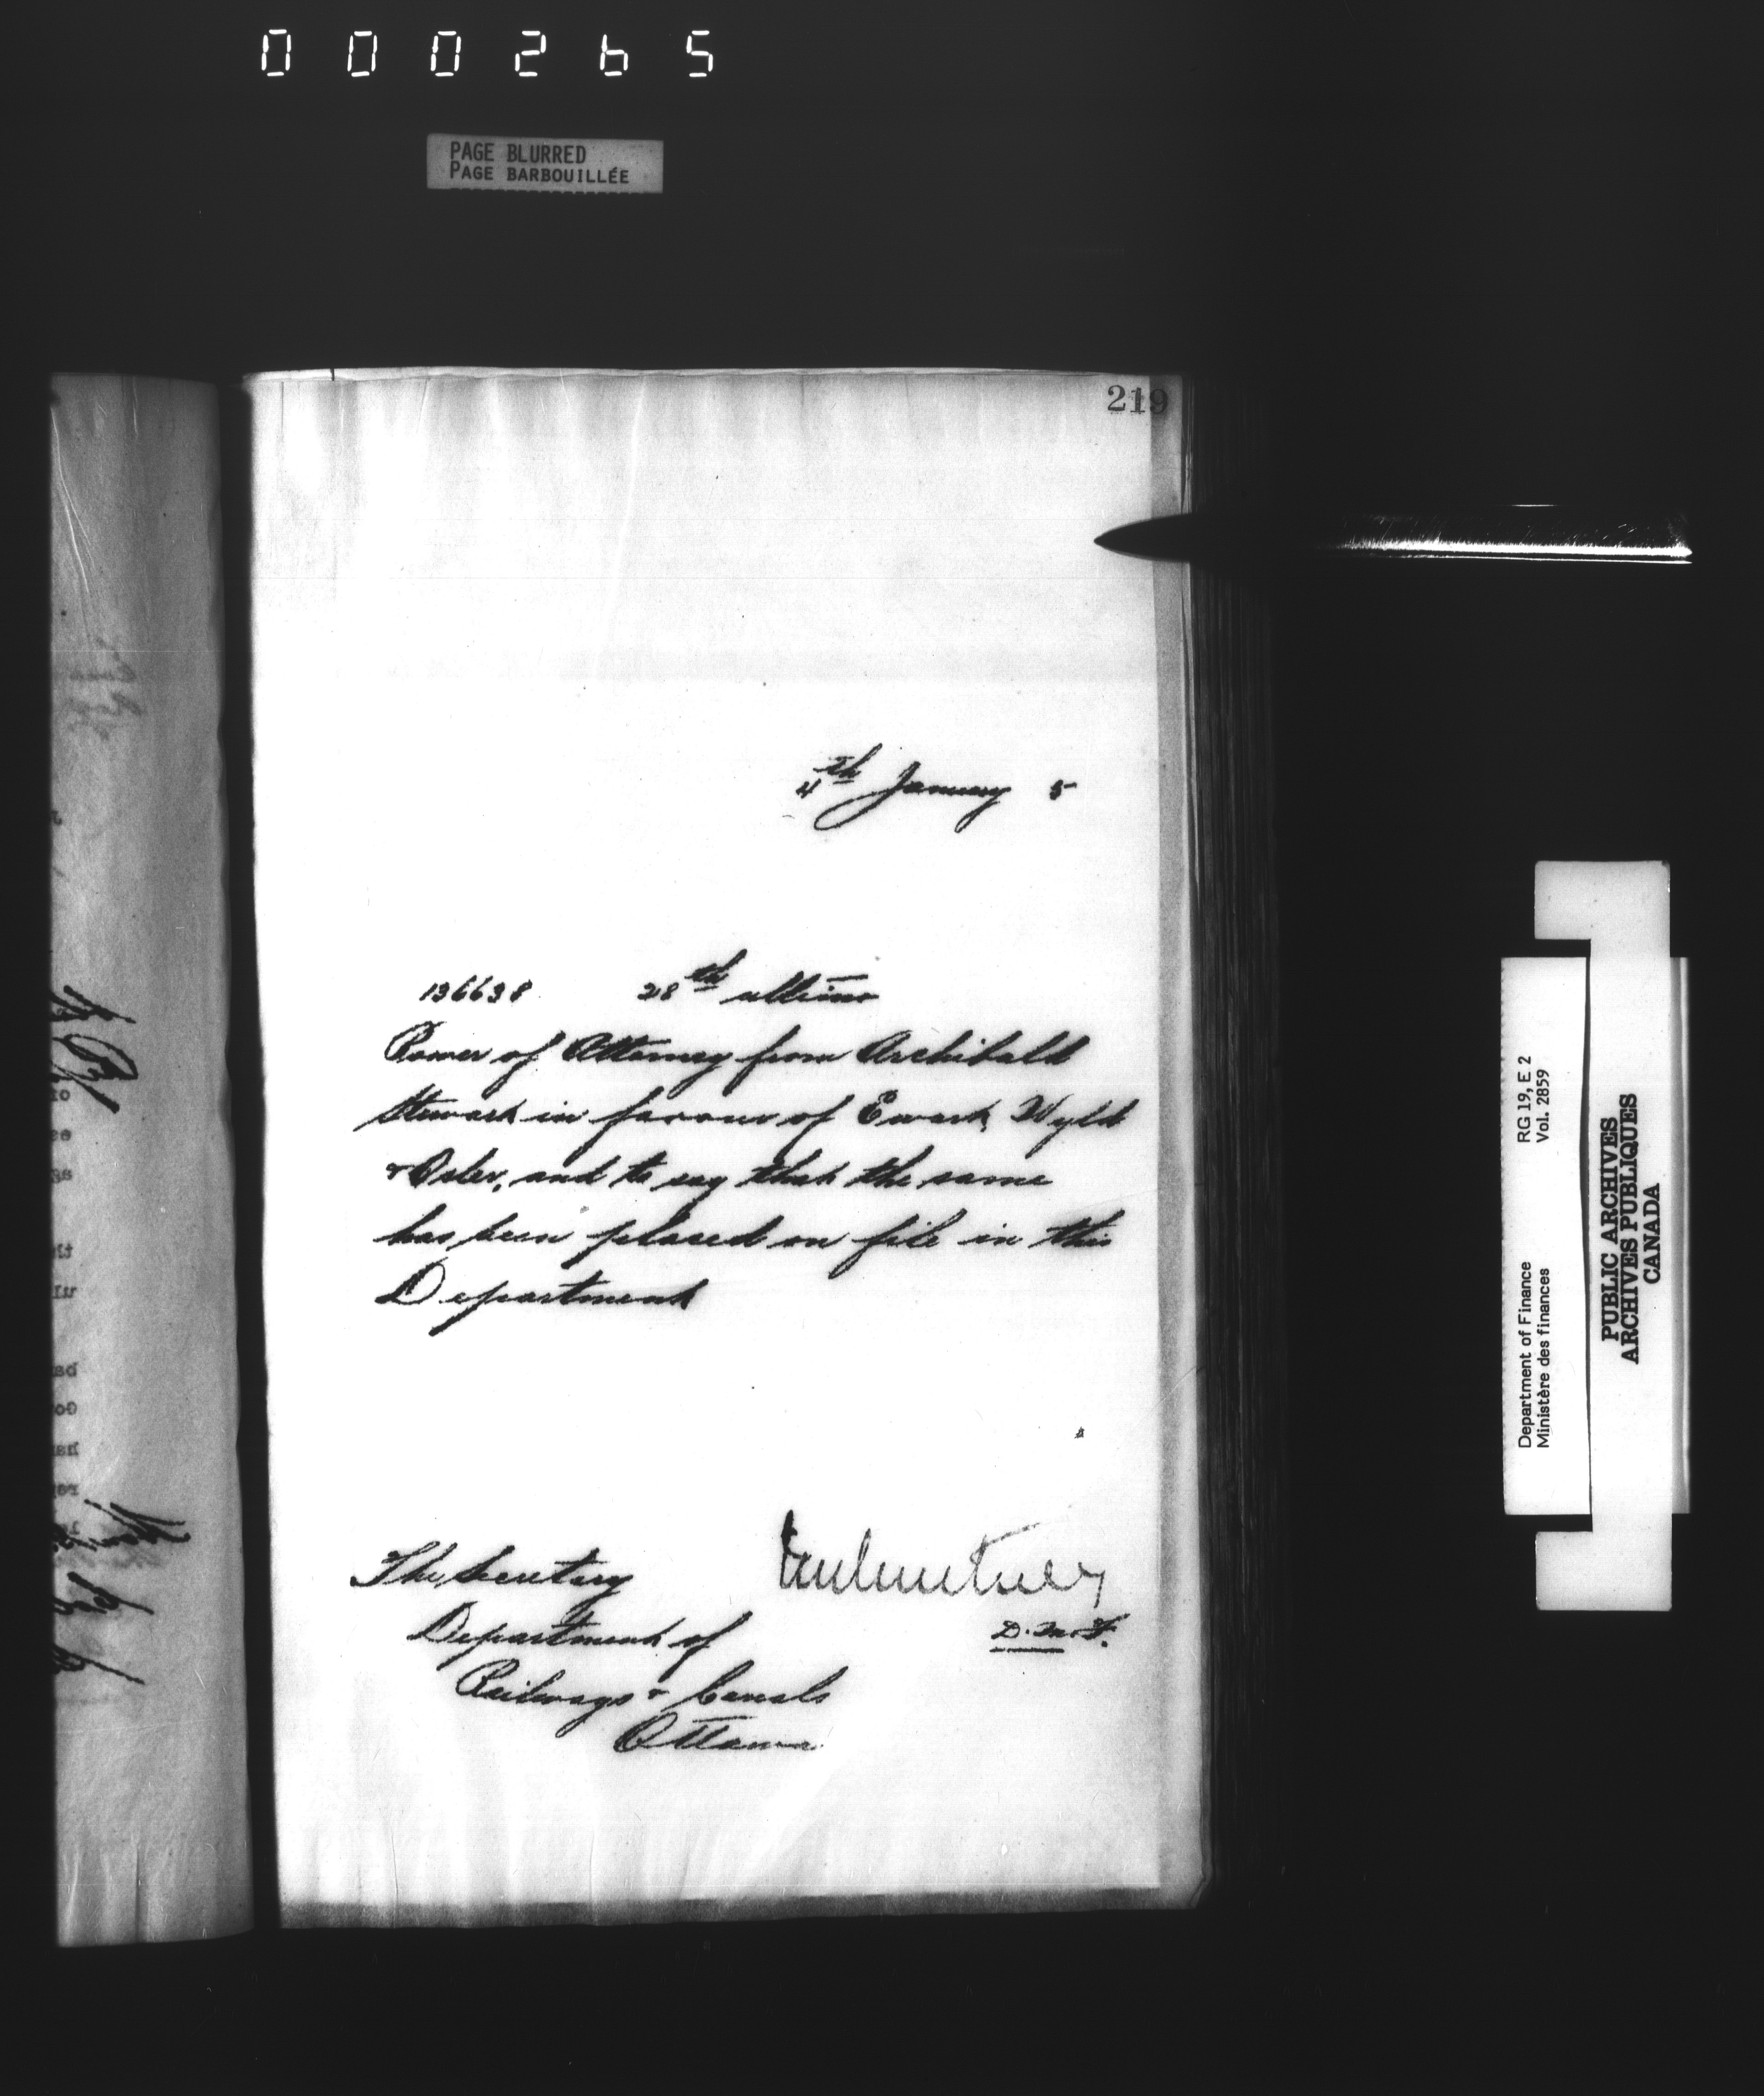 000265
PAGE BLURRED
PAGE BARBOUILLÉE
219
4th January 5
136638 28th ultimo
Power of Attorney from Archibald
Stewart in favour of Ewart, Wyld
& Osler, and to say that the same
has been placed on file in this
Department
The Secretary
D.M.F.
Department of
Railways & Canals
Ottawa
Department of Finance RG 19, E 2
Ministère des finances Vol. 2859
PUBLIC ARCHIVES
ARCHIVES PUBLIQUES
CANADA